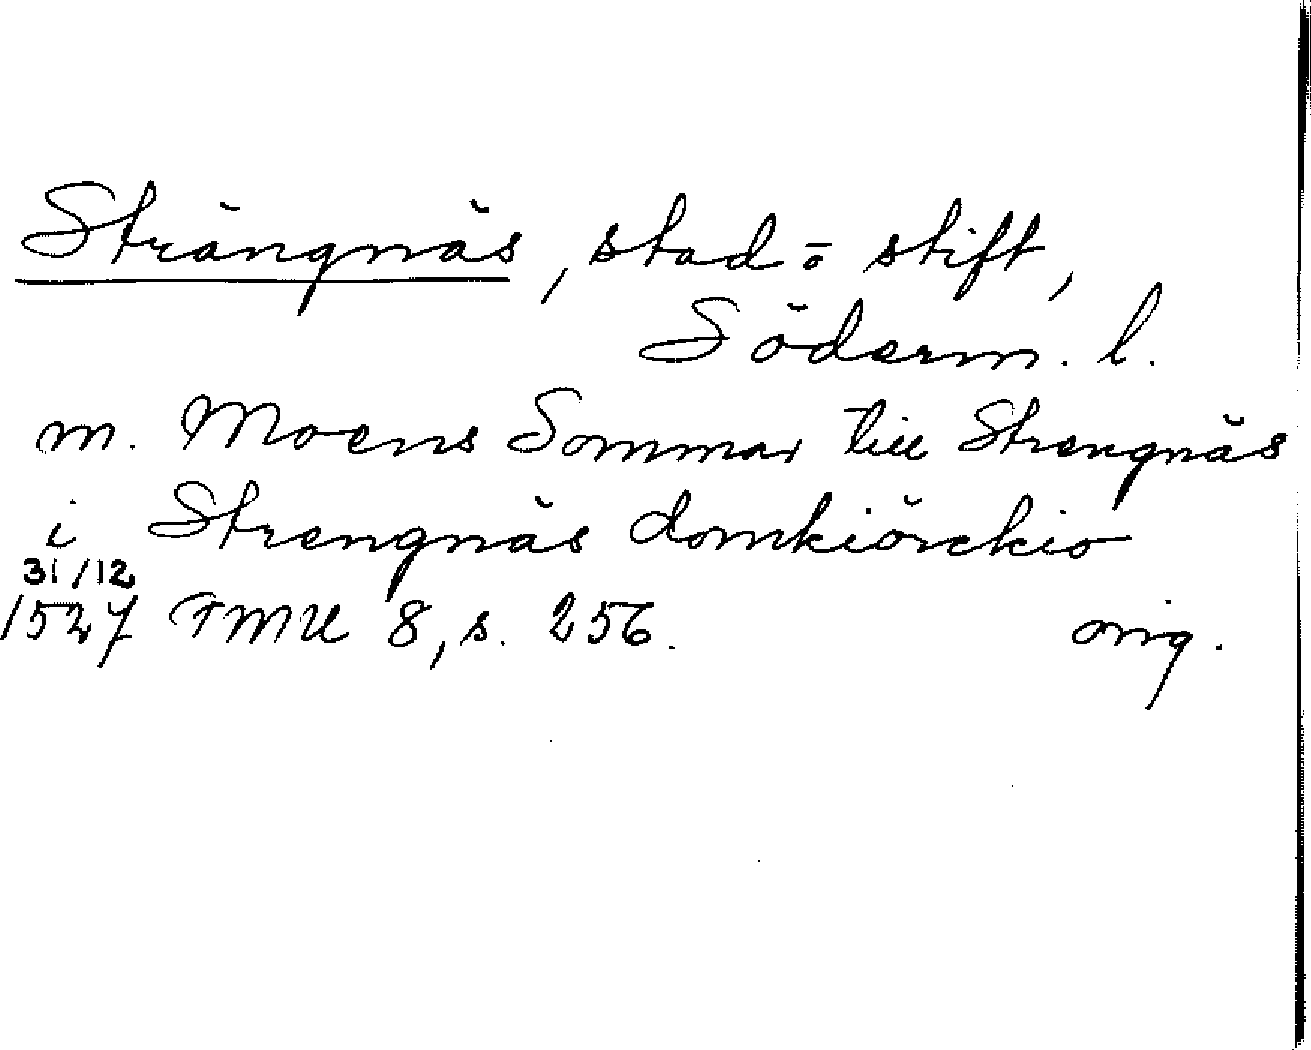 Strängnäs, stad o stift,
Söderm. l.
m. Moens Sommar till Strengnäs
i Strengnäs domkiörckio
31/12
1527 FMU 8, s. 256. orig.